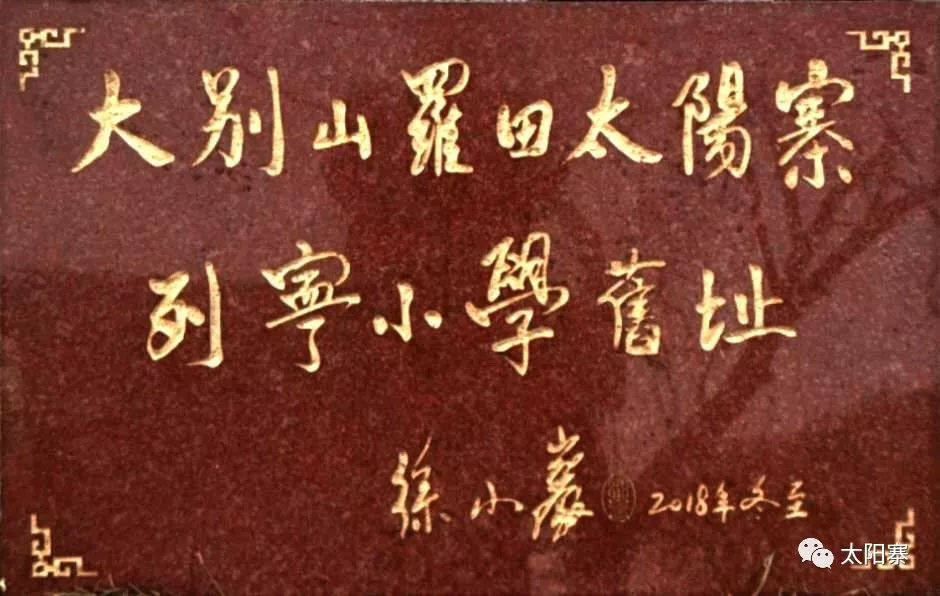 大别山羅田太陽寨
列寧小學舊址
徐小巖 2018年冬至
太阳寨